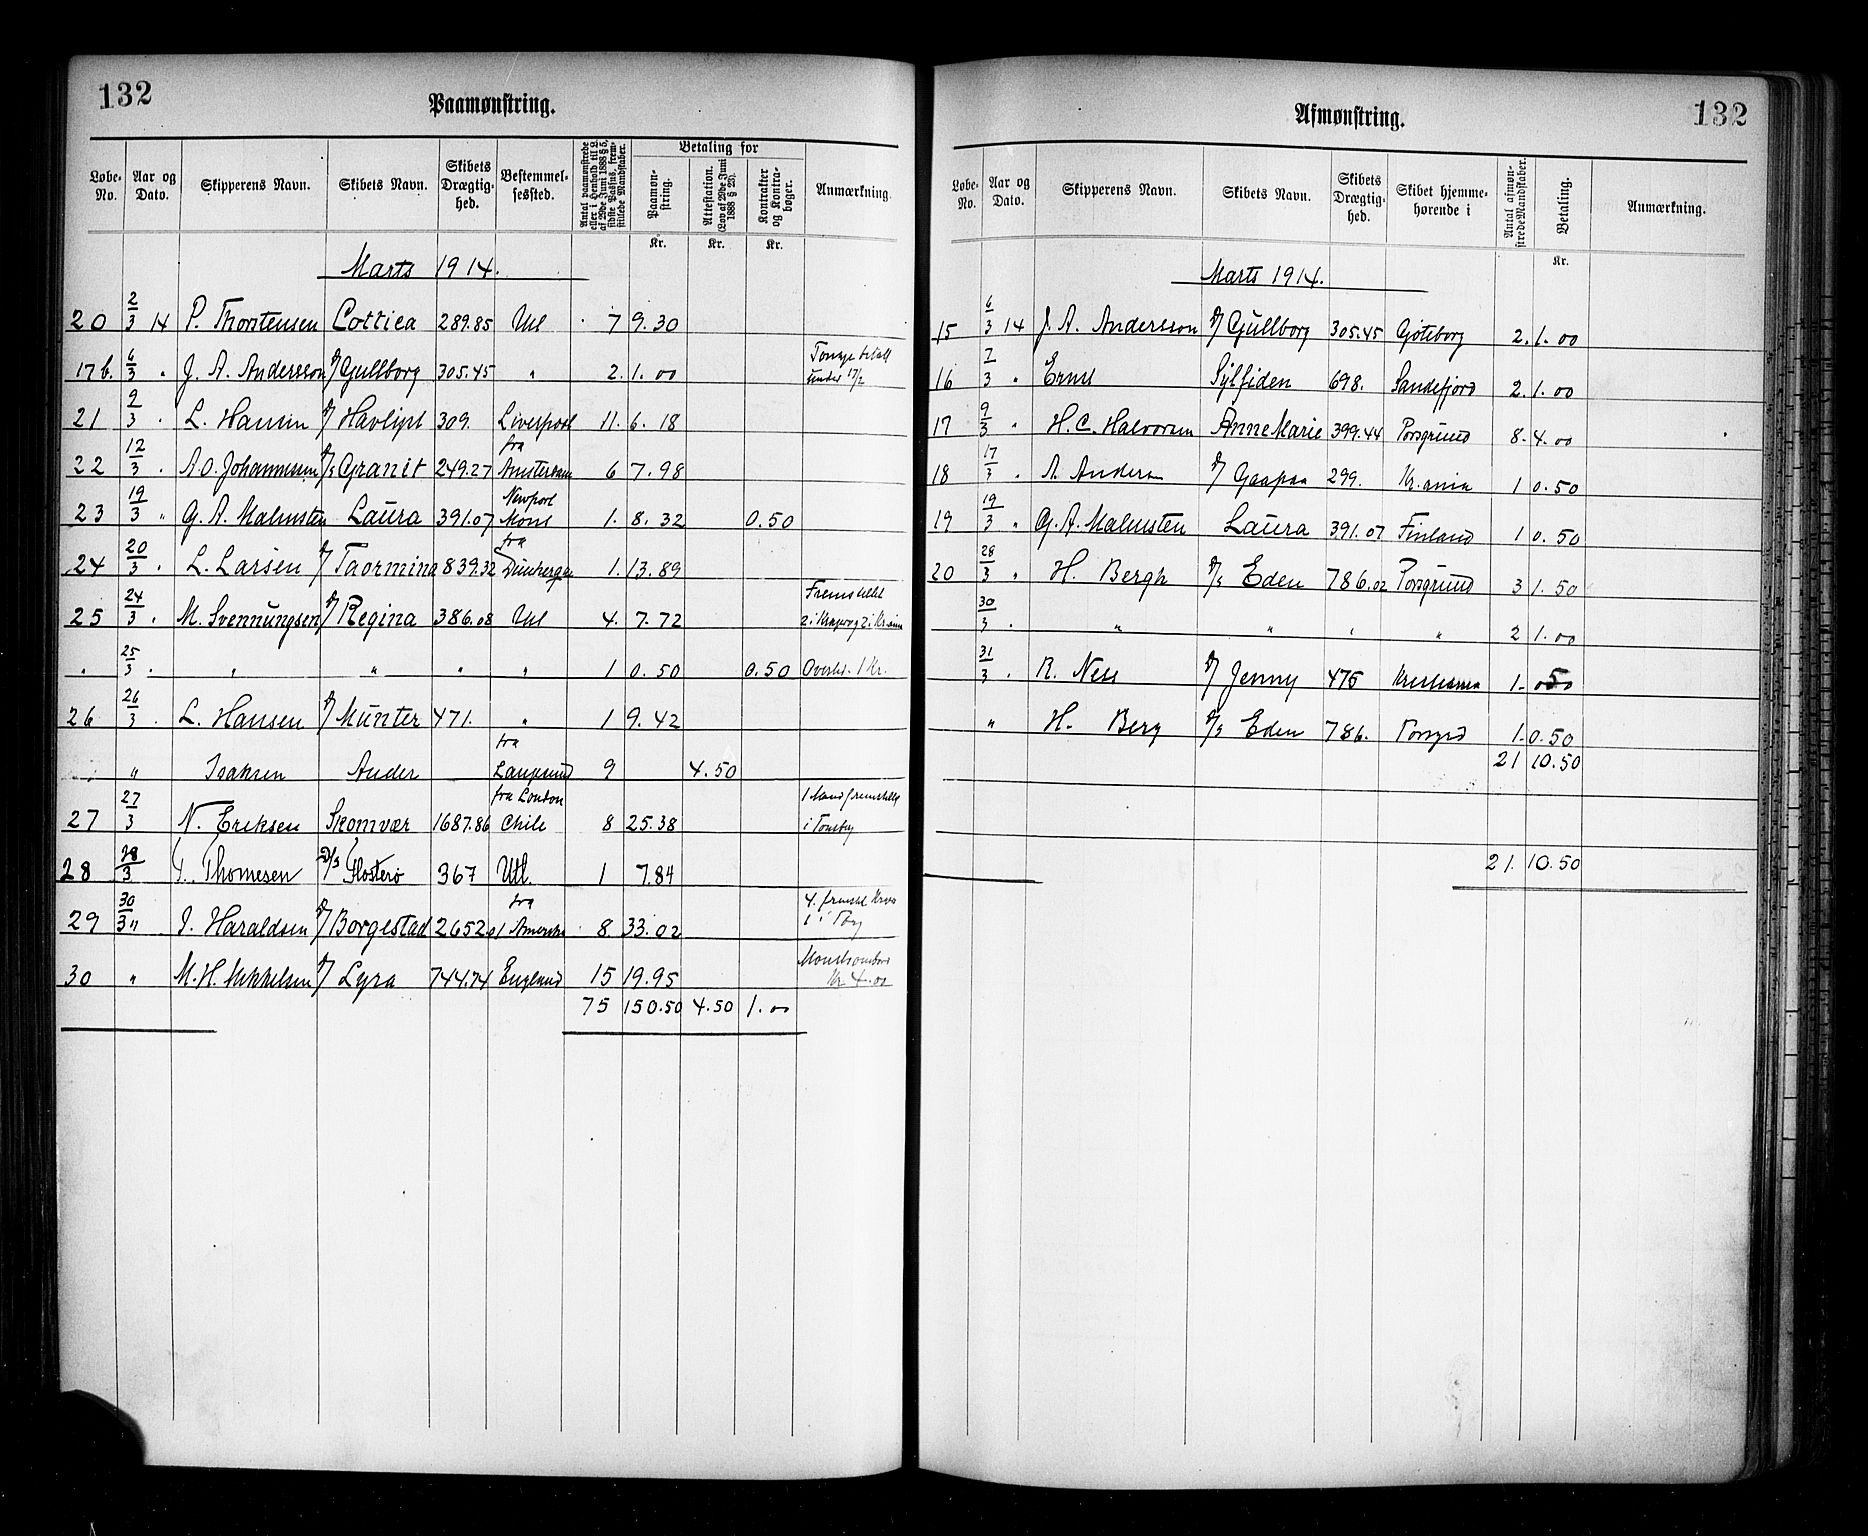 132
Paamønstring.
Løbe-No. Aar og Dato. Skipperens Navn. Skibets Navn. Skibets Drægtig-hed. Bestemmel-sessted. Antal paamønstrede eller i Henhold til L. af 29de Juni 1888 § 5, sidste Passus, frem-stillede Mandskaber. Betaling for Paamøn-string. Attestation. (Lov af 29de Juni 1888 § 23). Kontrakter og Kontra-bøger. Anmærkning.
Kr. Kr. Kr.
Marts 1914.
20 2/3 14 P. Thorstensen Cottica 289.85 Utl 7 9.30
17b. 6/3 " J. A. Andersson D/ Gullborg 305.45 " 2. 1.00 under 17/2
21 9/3 " L. Hansen D/ Havlyst 309. Liverpool 11. 6.18
22 12/3 " A.O. Johannesen D/s Granit 249.27 fra Amsterdam 6 7.98
23 19/3 " G. A. Malmsten Laura 391.07 Newport Mons 1. 8.32 0.50
24 20/3 " L. Larsen D/ Taormina 839.32 fra 1. 13.89
25 24/3 " M. Svennungsen D/ Regina 386.08 Utl 4. 7.72 Fremstillet
" 25/3 " " " " " 1 0.50 0.50 1 Kr.
26 26/3 " L. Hansen D/ Munter 471. " 1 9.42
" " Isaksen Ander fra Langesund 9 4.50
27 27/3 N. Eriksen Skomvær 1687.86 fra London Chile 8 25.38 1 Mand fremstillet i Tønsbg
28 28/3 T. Thomesen D/s Flosterø 367 Utl. 1 7.84
29 30/3 " J. Haraldsen D/ Borgestad 2652.01 fra Amerika 8. 33.02
30 " M. H. Mikkelsen D/ Lyra 744.74 England 15 19.95 Kr 4.00
75 150.50 4.50 1.00
Afmønstring.
132
Løbe-No. Aar og Dato. Skipperens Navn. Skibets Navn. Skibets Drægtig-hed. Skibet hjemme-hørende i Antal afmøn-strede Mandskaber. Betaling. Anmærkning.
Kr.
Marts 1914.
15 6/3 14 J. A. Andersson D/ Gullborg 305.45 Gøteborg 2. 1.00
16 7/3 " Ernst Sylfiden 698. Sandefjord 2. 1.00
17 9/3 " H. C. Halvorsen Anne Marie 399.44 Porsgrund 8. 4.00
18 17/3 " A. Andersen D/ Gaapaa 299. Kr.ania 1 0.50
19 19/3 " G. A. Malmsten Laura 391.07 Finland 1 0.50
20 28/3 " H. Bergh D/s Eden 786.02 Porsgrund 3 1.50
30/3 " " " " " 2 1.00
31/3 " R. Ness D/ Jenny 475 Kristiania 1. 0.50
" H. Berg D/s Eden 786. Porsgrd 1. 0.50
21 10.50
21. 10.50